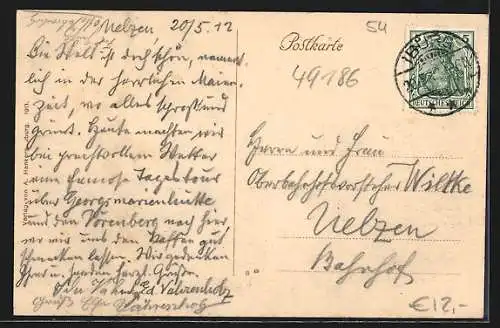 Uelzen, 20/5.12
Die Welt ist doch schön, nament-
lich in der herrlichen Maien-
zeit, wo alles sproßt und
grünt. Heute machten wir
bei prachtvollem Wetter
eine famose Tagestour
über Georgsmarienhütte
und den Dörenberg nach hier
wo wir uns den Kaffee gut
schmecken lassen. Wir gedenken
Ihrer u. senden herzl. Grüße.
Vahrenholz
Verlag von A. Osnabrück 1911.
Postkarte
54
49186
IBURG
DEUTSCHES REICH
5
Herrn und Frau
Oberbahnhofsvorsteher Wiltke
Uelzen
Bahnhof
€12,-